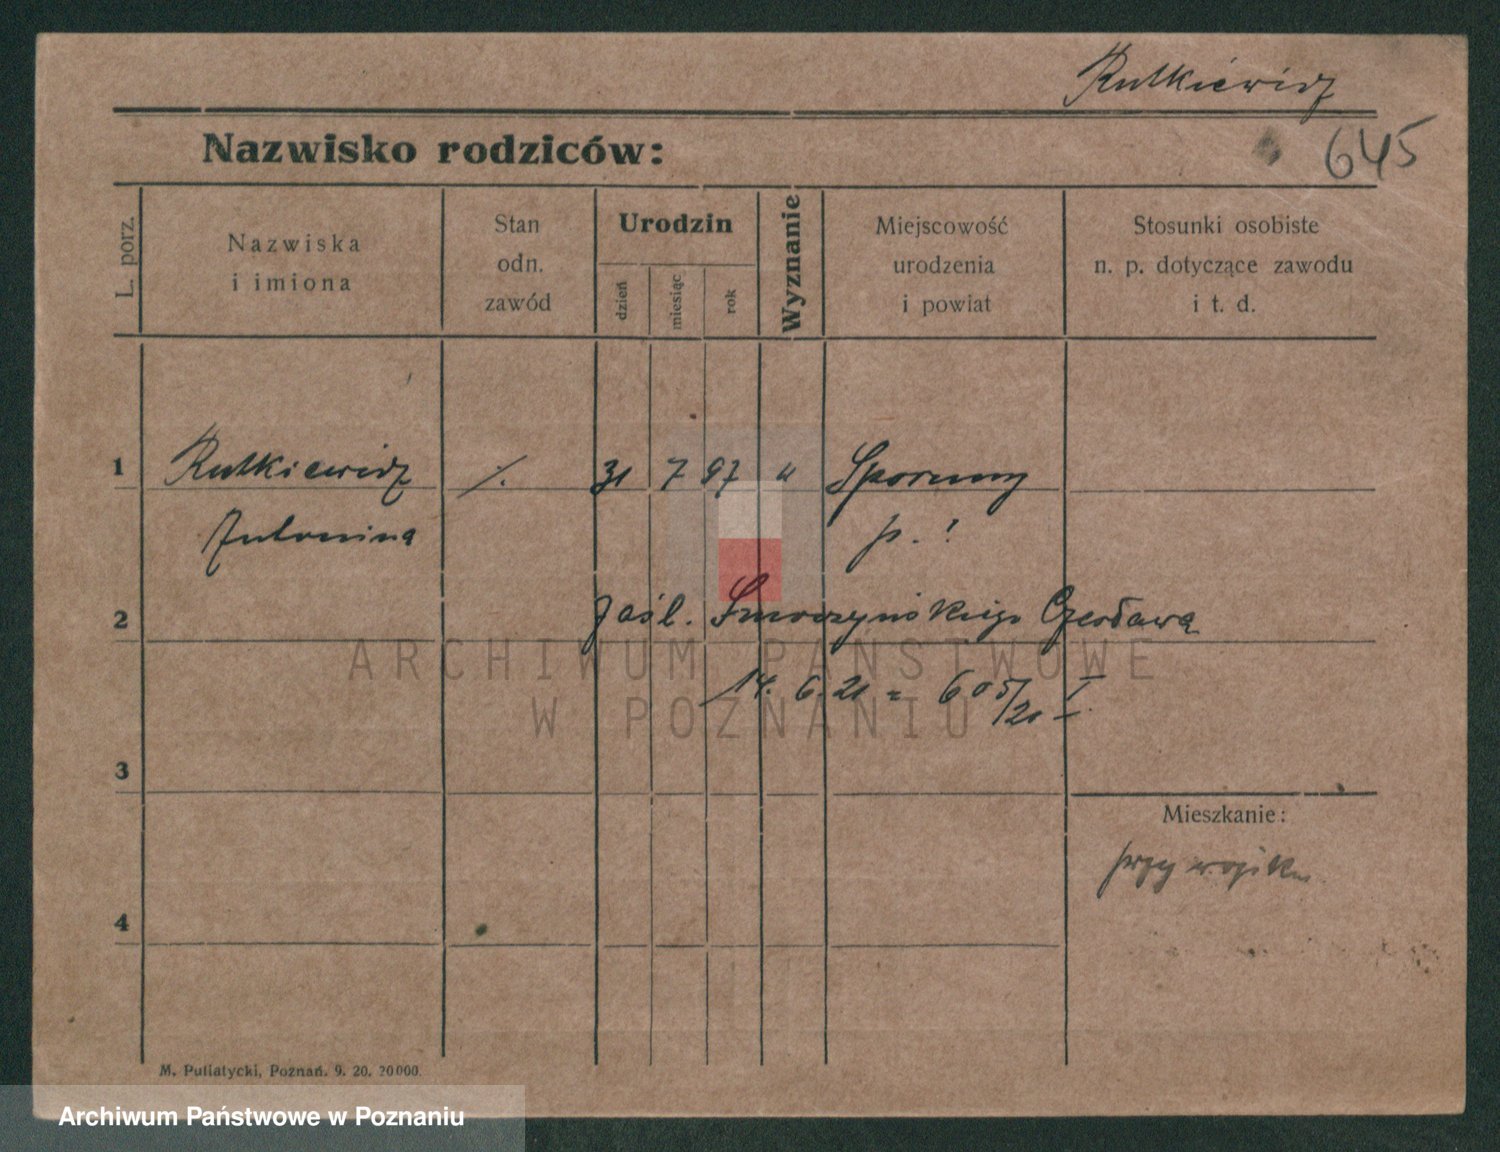 Rutkiewicz
645
Nazwisko rodziców:
L. porz.
Nazwiska
i imiona
Stan
odn.
zawód
Urodzin
dzień
miesiąc
rok
Wyznanie
Miejscowość
urodzenia
i powiat
Stosunki osobiste
n. p. dotyczące zawodu
i t. d.
1
Rutkiewicz
/.
31 7 97
Antonina
p. !
2
zaśl. Smoczyńskiego Czesława
14. 6. 21 = 605/20 I
3
Mieszkanie:
przy wojsku
4
M. Putiatycki, Poznań. 9. 20. 20000.
ARCHIWUM PAŃSTWOWE
W POZNANIU
Archiwum Państwowe w Poznaniu